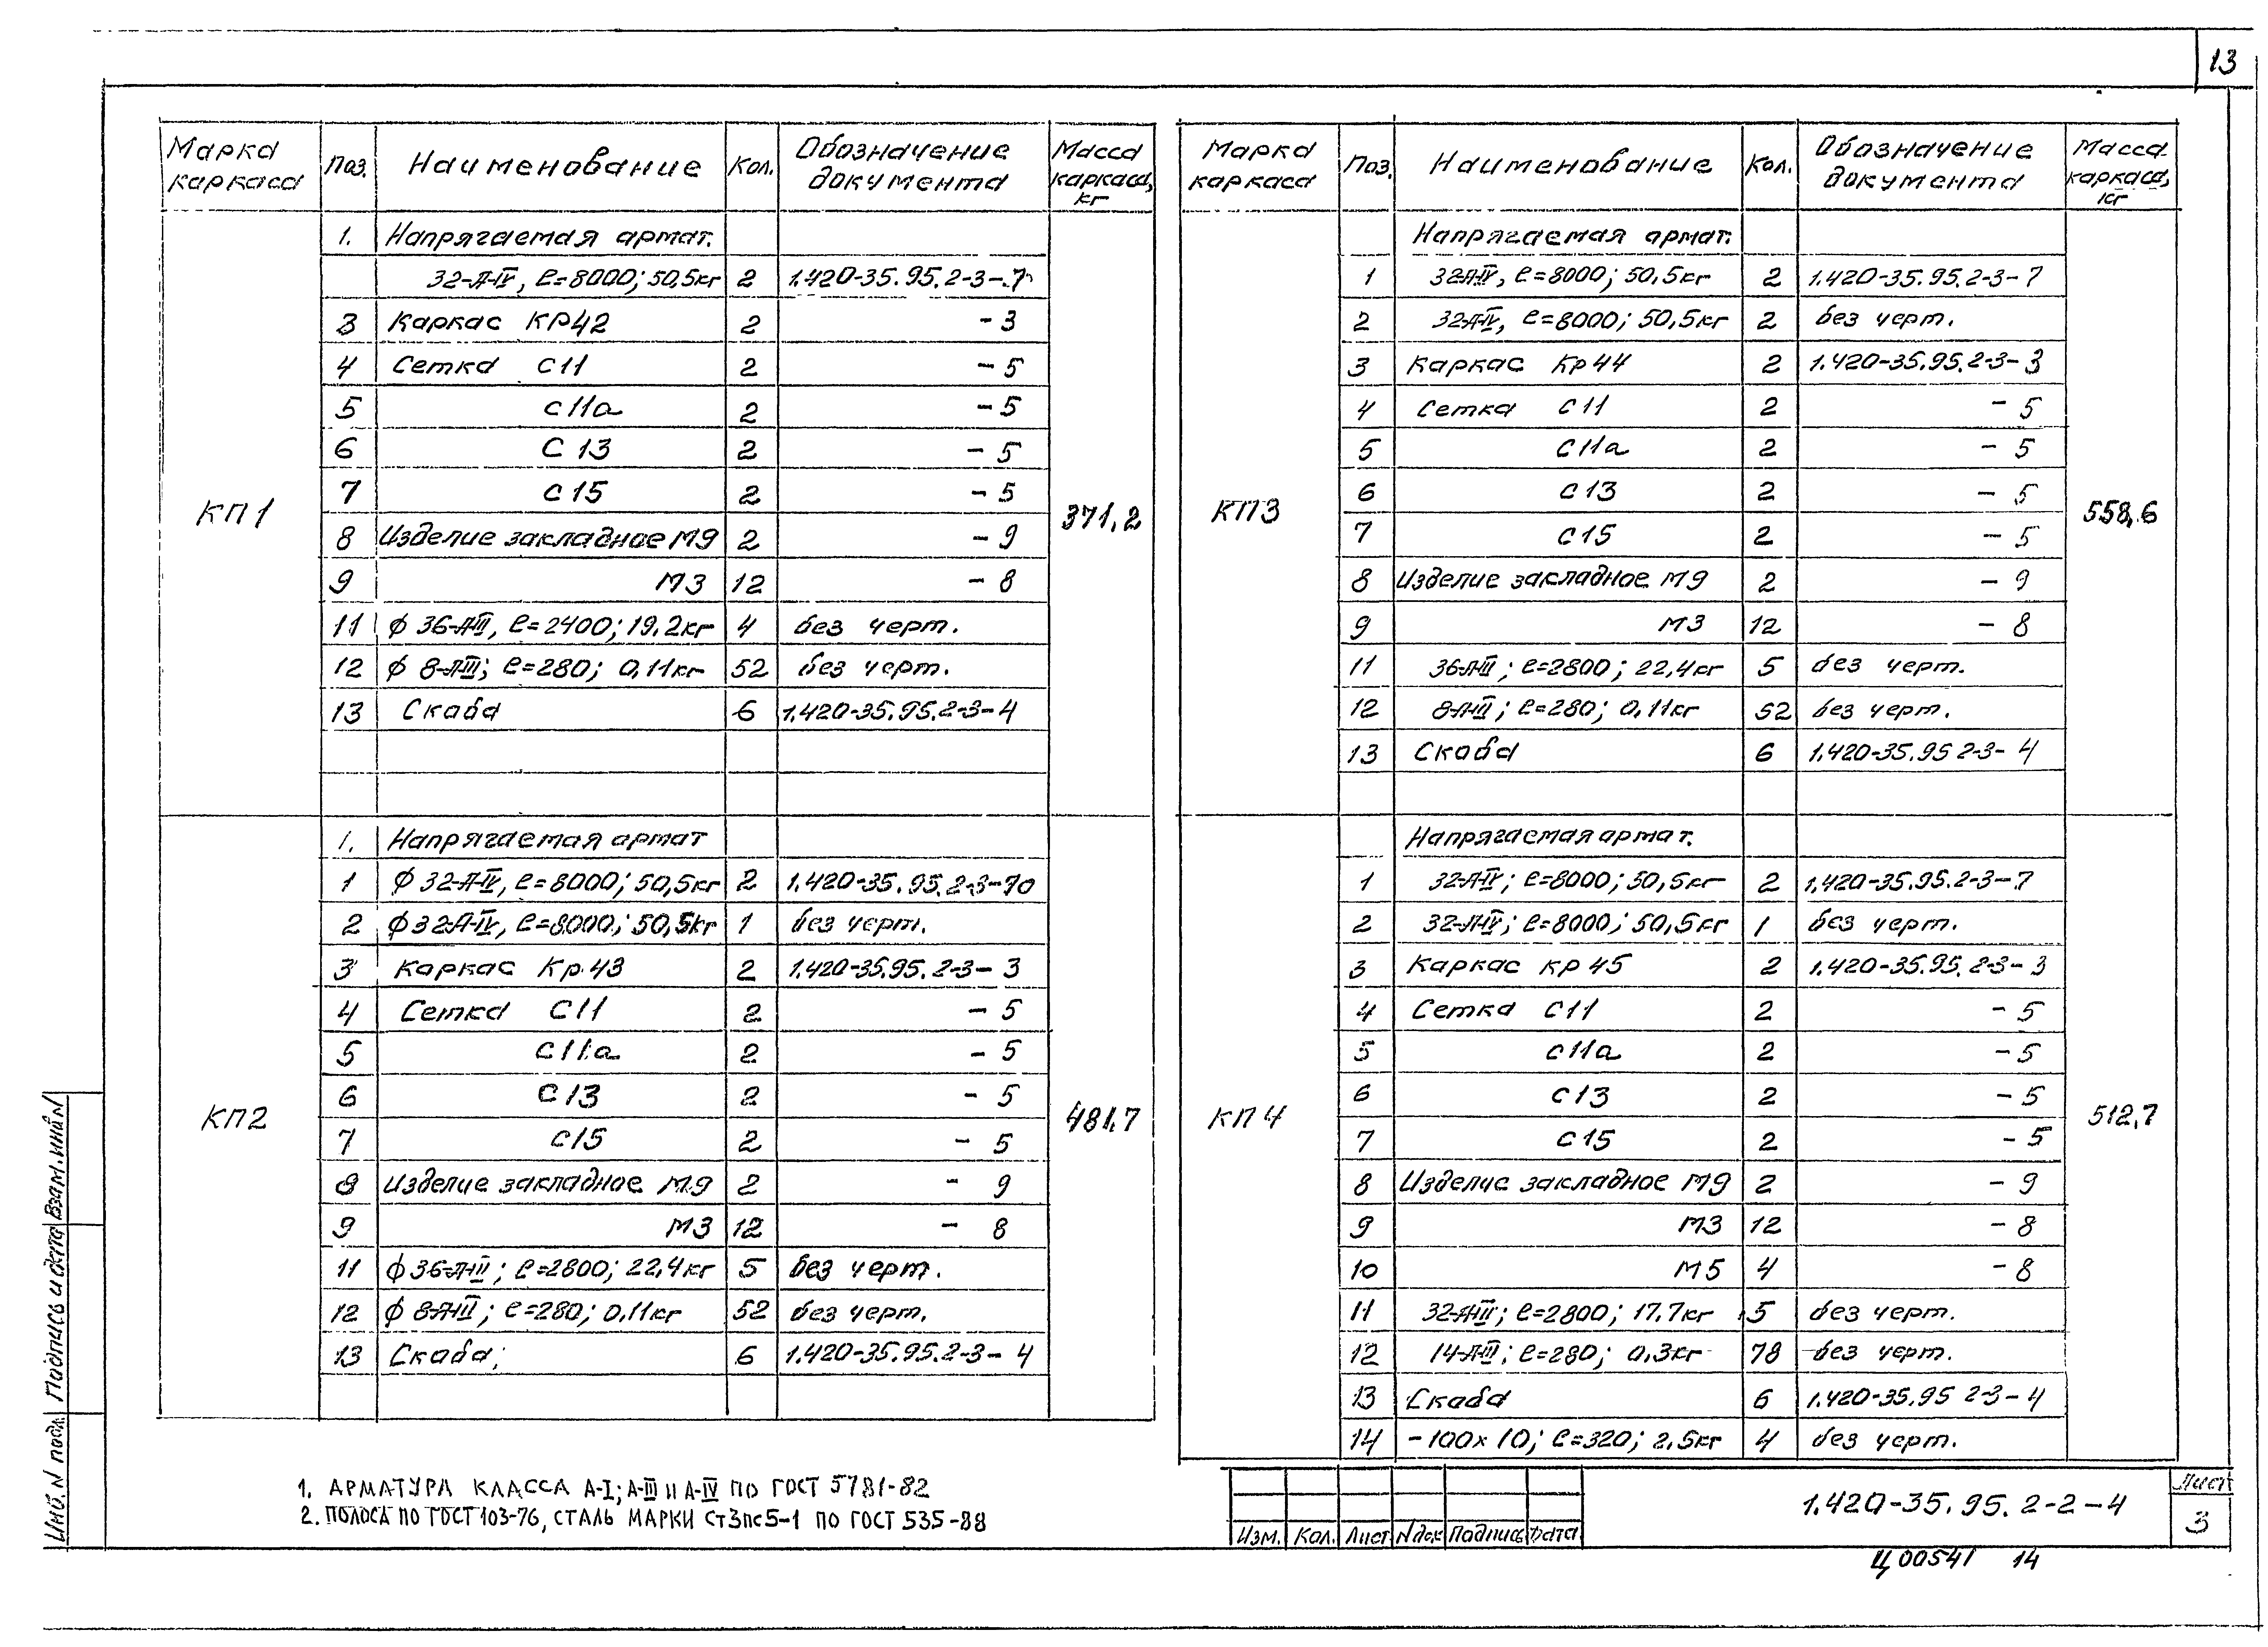 13
Марка каркаса Поз. Наименование Кол. Обозначение документа Масса каркаса, кг
КП1 371,2
1. Напрягаемая армат.
32-А-IV, ℓ=8000; 50,5кг 2 1.420-35.95.2-3-7
3 Каркас КР42 2 -3
4 Сетка С11 2 -5
5 С11а 2 -5
6 С13 2 -5
7 С15 2 -5
8 Изделие закладное М9 2 -9
9 М3 12 -8
11 ϕ 36-А-III, ℓ=2400; 19.2кг 4 без черт.
12 ϕ 8-А-III; ℓ=280; 0,11кг 52 без черт.
13 Скоба 6 1.420-35.95.2-3-4
КП2 481,7
1. Напрягаемая армат
1 ϕ 32-А-IV, ℓ=8000; 50,5кг 2 1.420-35.95.2-3-70
2 ϕ 32-А-IV, ℓ=8000; 50,5кг 1 без черт.
3 Каркас Кр43 2 1.420-35.95.2-3-3
4 Сетка С11 2 -5
5 С11а 2 -5
6 С13 2 -5
7 С15 2 -5
8 Изделие закладное М9 2 -9
9 М3 12 -8
11 ϕ 36-А-III; ℓ=2800; 22,4кг 5 без черт.
12 ϕ 8-А-III; ℓ=280; 0,11кг 52 без черт.
13 Скоба; 6 1.420-35.95.2-3-4
Марка каркаса Поз. Наименование Кол. Обозначение документа Масса каркаса, кг
КП3 558,6
Напрягаемая армат.
1 32-А-IV, ℓ=8000; 50,5кг 2 1.420-35.95.2-3-7
2 32-А-IV, ℓ=8000; 50,5кг 2 без черт.
3 Каркас Кр44 2 1.420-35.95.2-3-3
4 Сетка С11 2 -5
5 С11а 2 -5
6 С13 2 -5
7 С15 2 -5
8 Изделие закладное М9 2 -9
9 М3 12 -8
11 36-А-III; ℓ=2800; 22,4кг 5 без черт.
12 8-А-III; ℓ=280; 0,11кг 52 без черт.
13 Скоба 6 1.420-35.95 2-3-4
КП4 512,7
Напрягаемая армат.
1 32-А-IV; ℓ=8000; 50,5кг 2 1.420-35.95.2-3-7
2 32-А-IV; ℓ=8000; 50,5кг 1 без черт.
3 Каркас кр45 2 1.420-35.95.2-3-3
4 Сетка С11 2 -5
5 С11а 2 -5
6 С13 2 -5
7 С15 2 -5
8 Изделие закладное М9 2 -9
9 М3 12 -8
10 М5 4 -8
11 32-А-III; ℓ=2800; 17.7кг 5 без черт.
12 14-А-III; ℓ=280; 0,3кг 78 без черт.
13 Скоба 6 1.420-35.95 2-3-4
14 -100х10; ℓ=320; 2,5кг 4 без черт.
1. АРМАТУРА КЛАССА А-I; А-III И А-IV ПО ГОСТ 5781-82
2. ПОЛОСА ПО ГОСТ 103-76, СТАЛЬ МАРКИ Ст3пс5-1 ПО ГОСТ 535-88
Изм. Кол. Лист Nдок Подпись Дата
1.420-35.95.2-2-4
Лист
3
Ц00541 14
Инв. N подл. Подпись и дата Взам. инв N